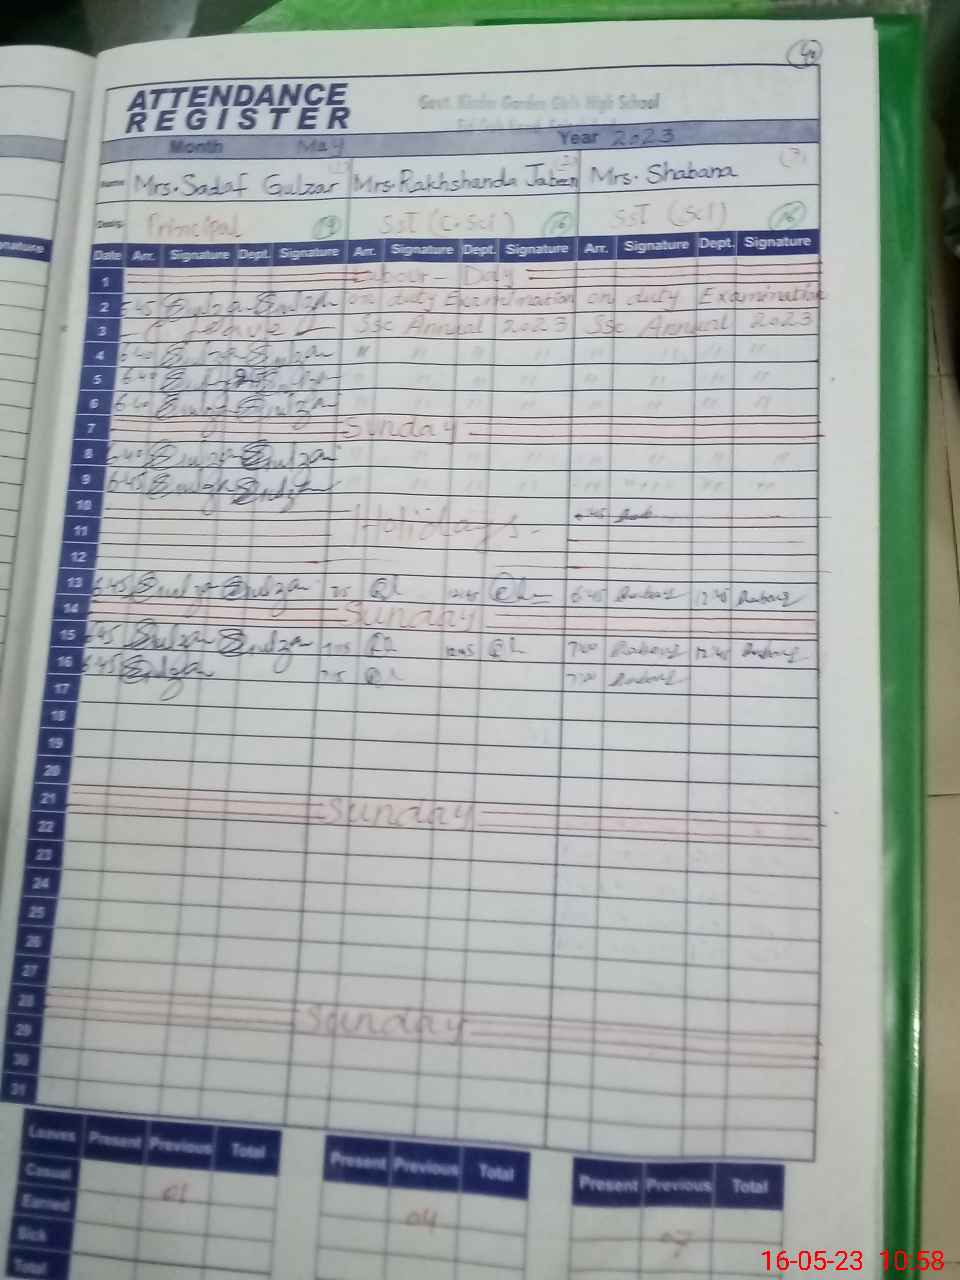 40
ATTENDANCE
REGISTER
Govt. Kinder Garden Girls High School
Month May Year 2023
Name Mrs. Sadaf Gulzar Mrs. Rakhshanda Jabeen Mrs. Shabana
Desig: Principal (19) SST (C.Sci) (16) SST (Sci) (16)
Date Arr. Signature Dept. Signature Arr. Signature Dept. Signature Arr. Signature Dept. Signature
1 Labour - Day
2 6:45 Gulzar Gulzar on duty Examination on duty Examination
3 C leave Ssc Annual 2023 Ssc Annual 2023
4 6:40 Gulzar Gulzar " " " " " " " "
5 6:40 " " " " " " " "
6 6:40 Gulzar Gulzar " " " " " " " "
7 Sunday
8 6:40 Gulzar Gulzar " " " " " " " "
9 6:45 Gulzar Gulzar " " " " " " " "
10
11 Holidays
12
13 6:45 Gulzar Gulzar 7:15 12:45 6:45 12:45
14 Sunday
15 6:45 Gulzar Gulzar 7:15 12:45 7:00 12:45
16 6:45 Gulzar 7:15 7:00
17
18
19
20
21 Sunday
22
23
24
25
26
27
28 Sunday
29
30
31
Leaves Present Previous Total Present Previous Total Present Previous Total
Casual 01 04 07
Earned
Sick
Total
16-05-23 10:58